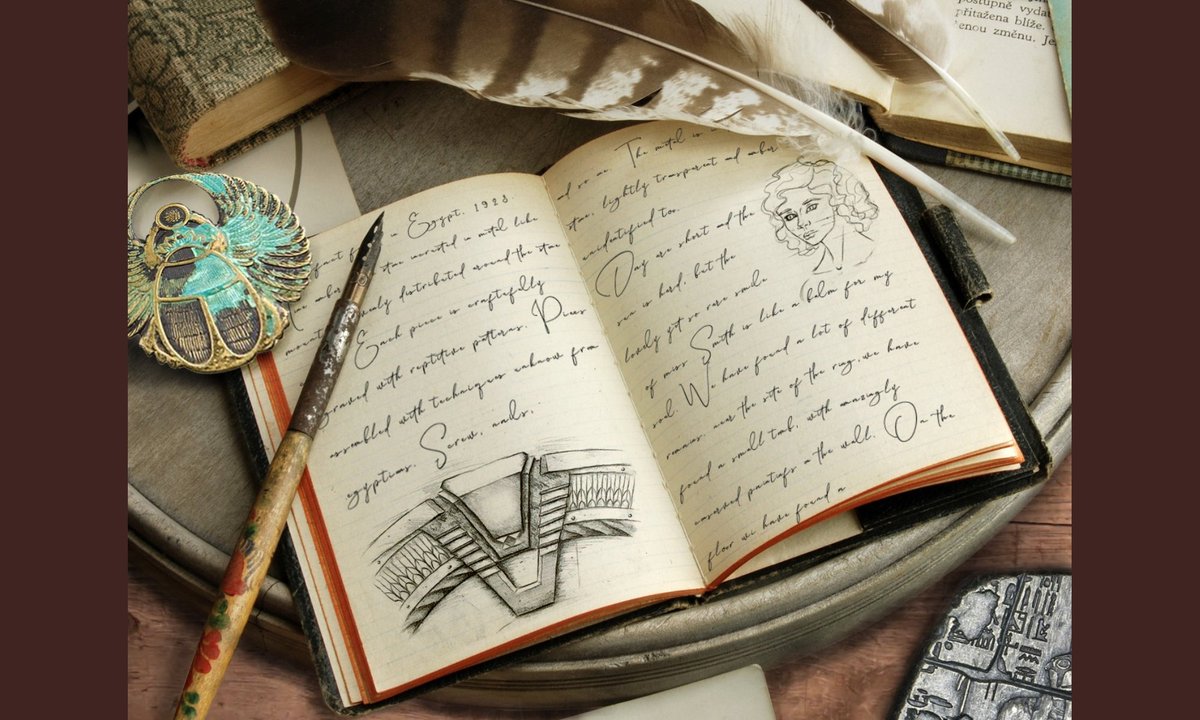 in Egypt. 1923
stone incrusted in metal like
amber evenly distributed around the stone
Each piece is craftefully
graved with repetitive patterns. Pieces
assembled with techniques unknow from
egyptians. Screw, nails.
The metal is
and so on
stone, lightly transparent and amber
unidentified too.
Day are short and the
sun is hard, but the
lovely yet so rare smile
of miss Smith is like a balm for my
soul. We have found a lot of different
remains, near the site of the rug, we have
found a small tomb, with amazingly
conserved paintings on the wall. On the
floor we have found a
postupně
přitažena blíže.
změnu. Je